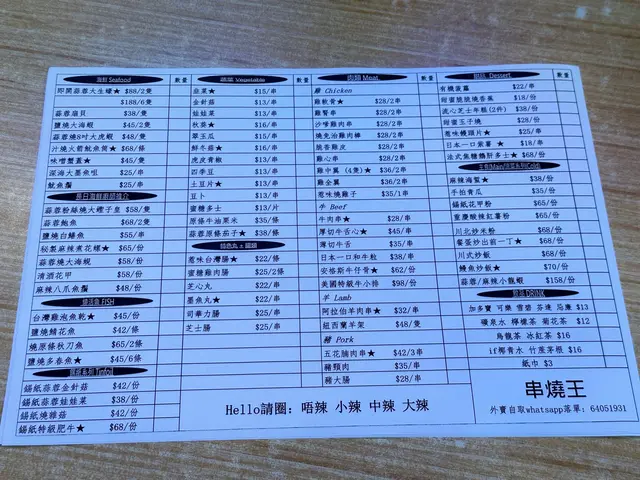 海鮮 Seafood 數量
即開蒜蓉大生蠔★ $88/2隻
$188/6隻
蒜蓉扇貝 $38/隻
鹽燒大海蝦 $45/2隻
蒜蓉燒8吋大虎蝦 $48/隻
汁燒大箭魷魚筒★ $68/條
味噌蟹蓋★ $45/隻
深海大墨魚咀 $25/串
魷魚鬚 $25/串
是日海鮮廚師推介
蒜蓉粉絲燒大蟶子皇 $58/隻
蒜蓉鮑魚 $68/2隻
鹽燒白鱔魚 $55/串
秘製麻辣煮花螺★ $65/份
蒜蓉燒大海蜆 $58/份
清酒花甲 $58/份
麻辣八爪魚鬚 $48/份
燒活魚 FISH
台灣雞泡魚乾★ $45/份
鹽燒鯖花魚 $42/條
燒原條秋刀魚 $65/2條
鹽燒多春魚★ $45/6條
錫紙系列 Tinfoil
錫紙蒜蓉金針菇 $42/份
錫紙蒜蓉娃娃菜 $38/份
錫紙燒雜菇 $42/份
錫紙特級肥牛★ $68/份
蔬菜 Vegetable 數量
韭菜★ $15/串
金針菇 $13/串
娃娃菜 $13/串
秋葵★ $16/串
翠玉瓜 $15/串
鮮冬菇★ $16/串
虎皮青椒 $13/串
四季豆 $13/串
土豆片★ $13/串
豆卜 $13/串
蜜糖多士 $13/片
原條牛油粟米 $35/條
蒜蓉原條茄子★ $38/條
特色丸 & 腸類
惹味台灣腸★ $22/條
蜜糖雞肉腸 $25/2條
芝心丸 $22/串
墨魚丸★ $22/串
司華力腸 $25/串
芝士腸 $25/串
肉類 Meat 數量
雞 Chicken
雞軟骨★ $28/2串
雞腎串 $28/2串
沙嗲雞肉串 $28/2串
燒免治雞肉棒 $28/2串
脆香雞皮 $28/2串
雞心串 $28/2串
雞中翼 (4隻)★ $36/2串
雞全翼 $36/2隻
惹味燒雞子 $35/1串
牛 Beef
牛肉串★ $28/串
厚切牛舌心★ $45/串
薄切牛舌 $35/串
日本一口和牛粒 $38/串
安格斯牛仔骨★ $62/份
美國特級牛小排 $98/份
羊 Lamb
阿拉伯羊肉串★ $32/串
紐西蘭羊架 $48/隻
豬 Pork
五花腩肉串★ $42/3串
豬頸肉 $35/串
豬大腸 $28/串
甜品 Dessert 數量
有機菠蘿 $22/串
甜蜜脆脆燒香蕉 $18/份
流心芝士年糕(2件) $38/份
甜蜜玉子燒 $28/份
惹味饅頭片★ $25/串
日本一口素薯★ $18/串
法式魚糖鵝肝多士★ $68/份
主食(Main)/涼菜系列(Cold)
麻辣海蜇★ $38/份
手拍青瓜 $35/份
錫紙花甲粉 $65/份
重慶酸辣紅薯粉 $65/份
川北炒米粉 $68/份
餐蛋炒出前一丁★ $68/份
川式炒飯 $68/份
鰻魚炒飯★ $70/份
蒜蓉/麻辣小龍蝦 $158/份
飲品 DRINK
加多寶 可樂 雪碧 芬達 忌廉 $13
礦泉水 檸檬茶 菊花茶 $12
烏龍茶 冰紅茶 $16
if椰青水 竹蔗茅根 $16
紙巾 $3
Hello請圈：唔辣 小辣 中辣 大辣
串燒王
外賣自取whatsapp落單：64051931